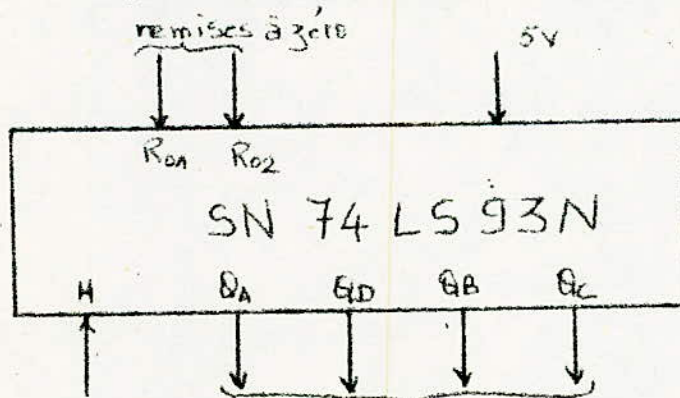 remises à zéro 5V
R01 R02
SN 74 LS 93N
H QA QD QB QC